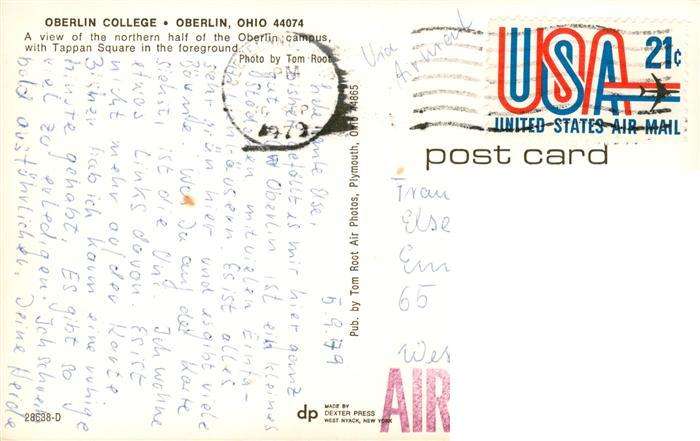 OBERLIN COLLEGE • OBERLIN, OHIO 44074
A view of the northern half of the Oberlin campus,
with Tappan Square in the foreground.
Photo by Tom Root
5.9.79
Else,
gefällt es mir hier ganz
gut. Oberlin ist ein kleines
mit vielen Einfa-
Es ist alles
sehr grün hier und es gibt viele
Bäume. Wo Du auf der Karte
siehst ist die Uni. Ich wohne
etwas links davon. Es ist
nicht mehr auf der Karte
Bisher hab ich kaum eine ruhige
Minute gehabt. Es gibt so
viel zu erledigen. Ich schreibe
bald ausführlicher. Deine Heide
28638-D
Pub. by Tom Root Air Photos, Plymouth, Ohio 44865
dp
MADE BY
DEXTER PRESS
WEST NYACK, NEW YORK
Via
Airmail
1979
USA 21c
UNITED STATES AIR MAIL
post card
Frau
Else
Em
65
Wes
AIR